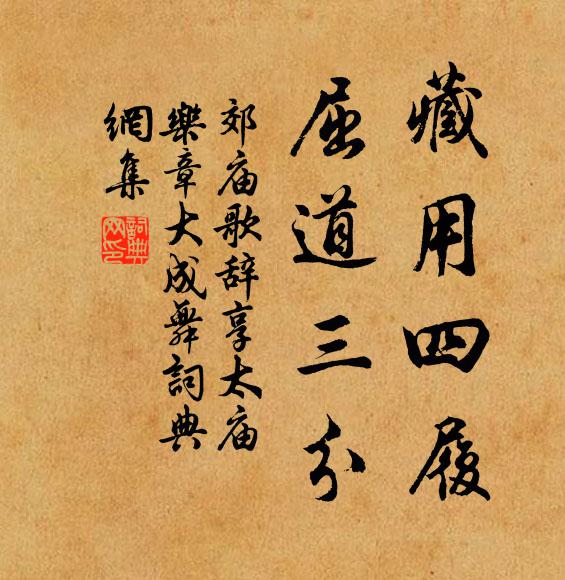 藏用四履
屈道三分
郊庙歌辞享太庙
樂章大成舞詞典
網集
詞典网印